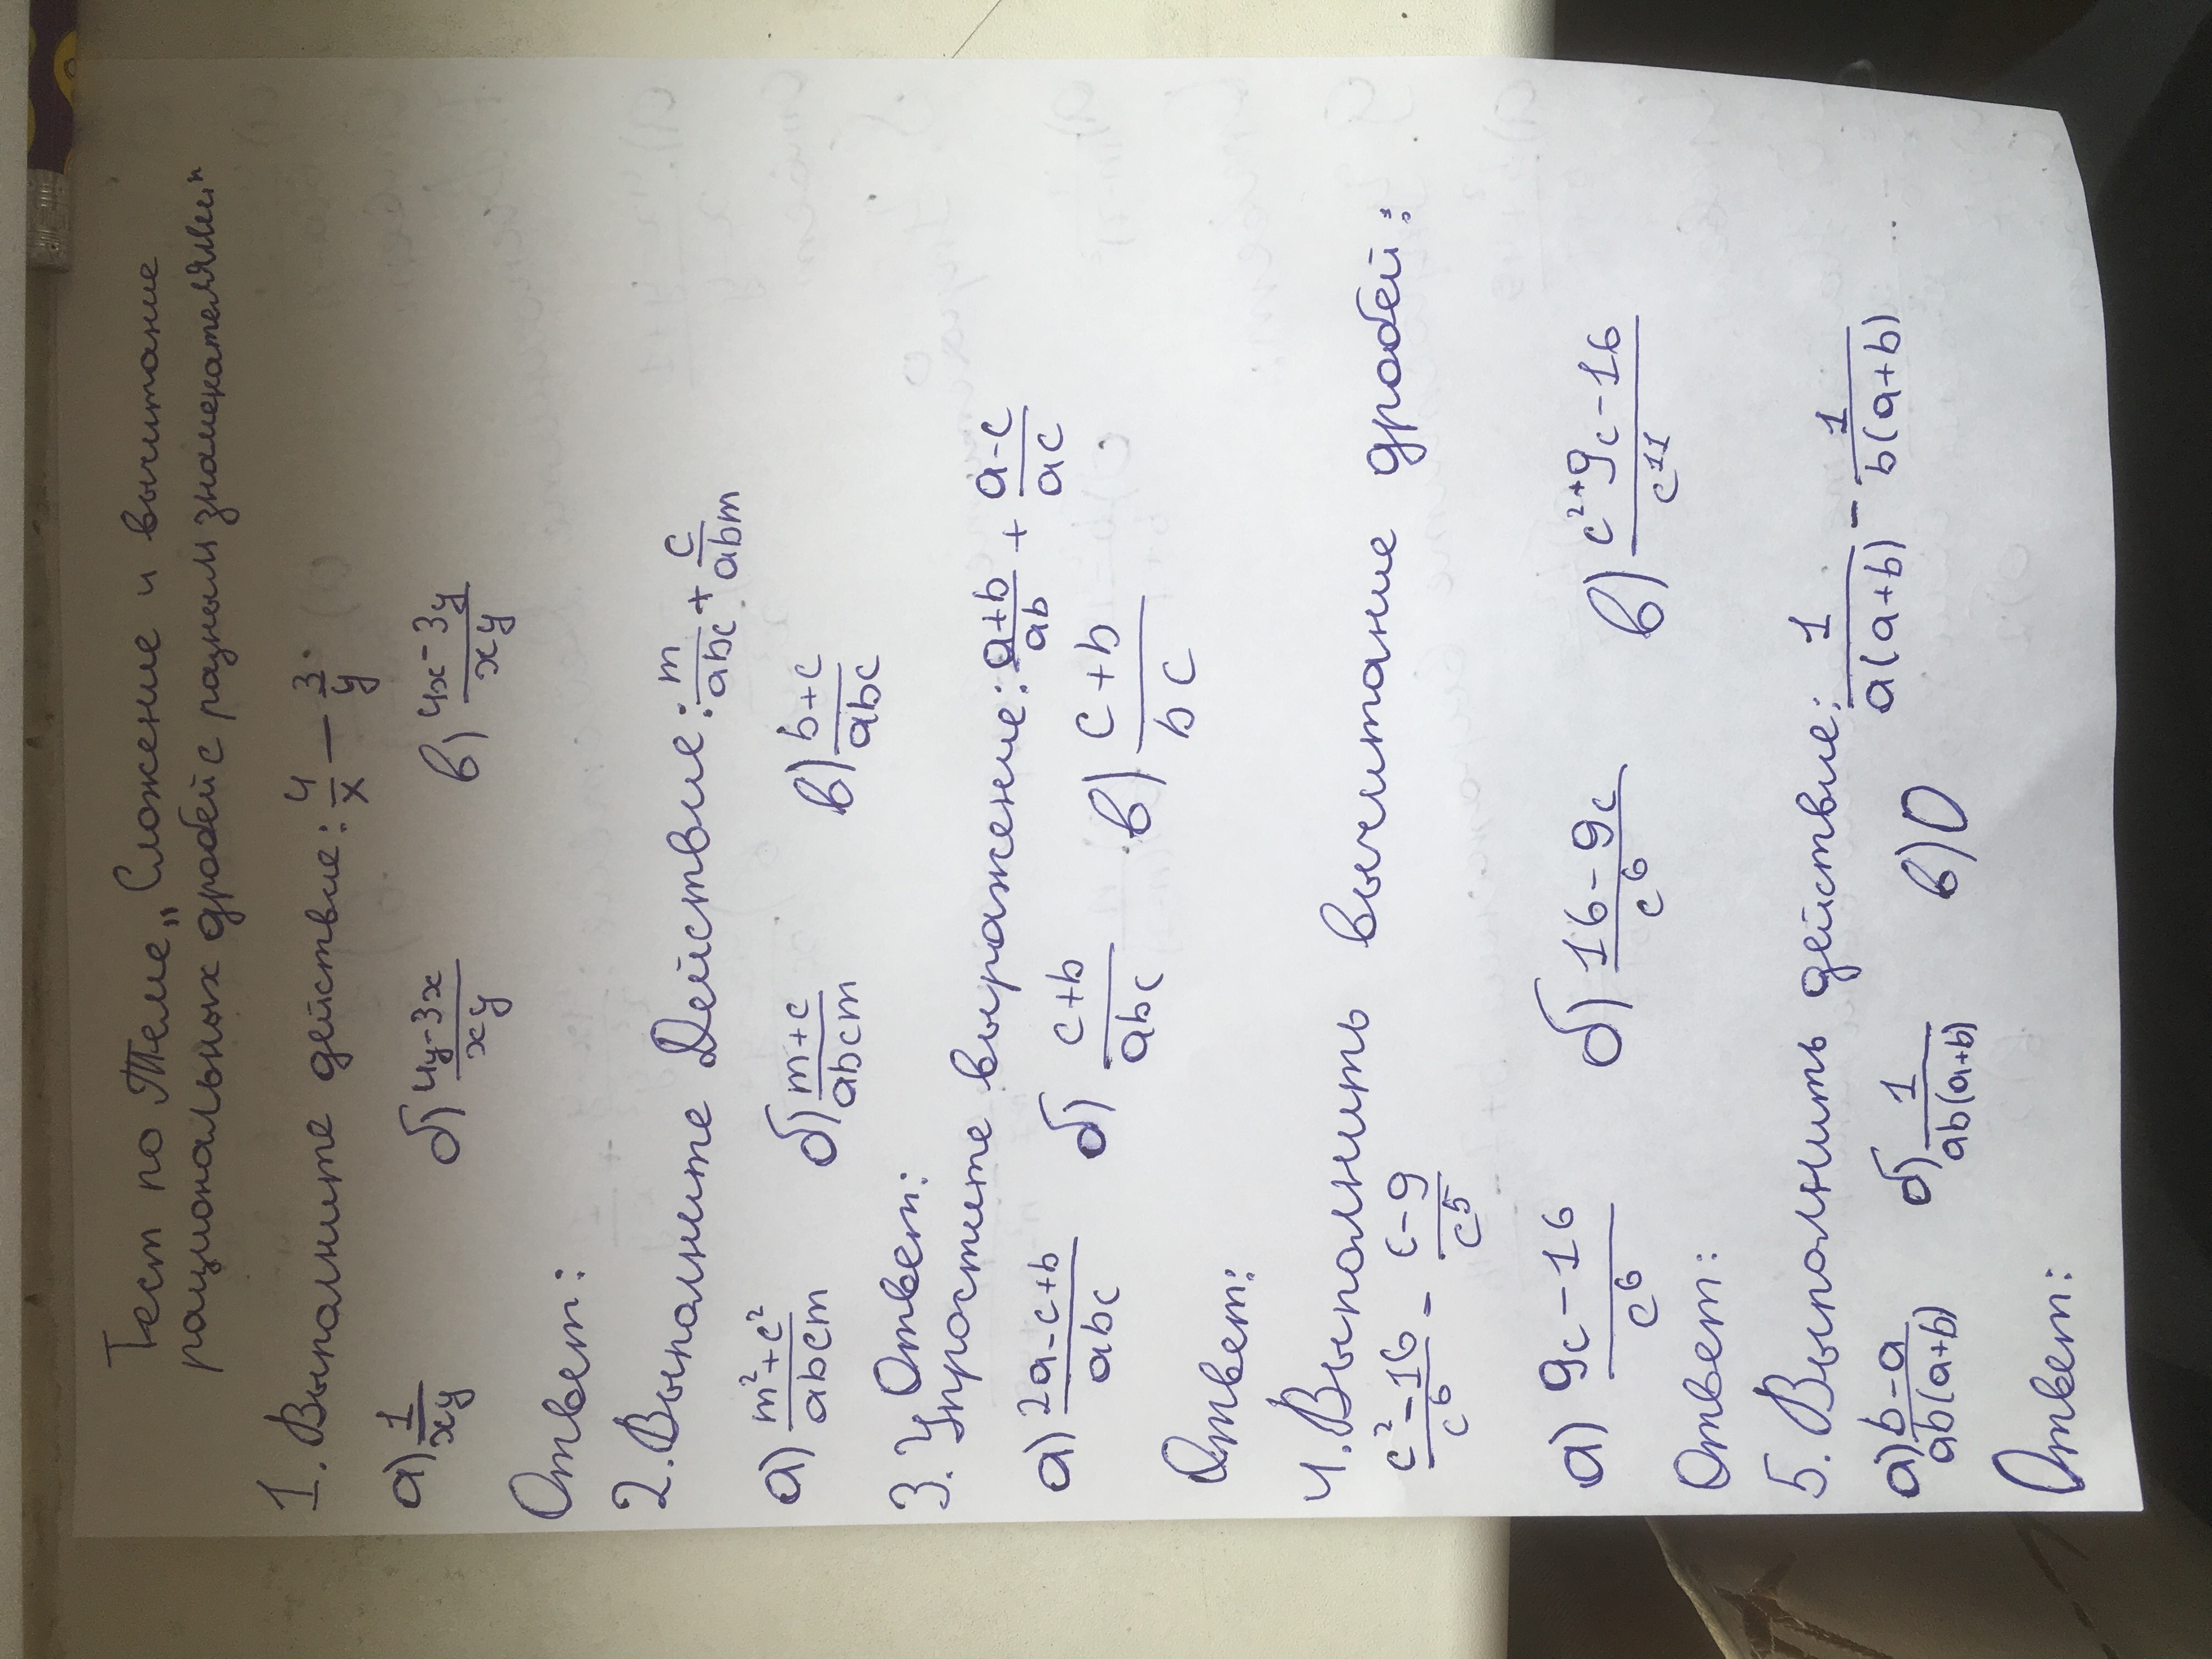 Тест по теме „Сложение и вычитание
рациональных дробей с разными знаменателями"
1. Выполните действие: 4/x − 3/y.
а) 1/xy б) 4y−3x/xy в) 4x−3y/xy
Ответ:
2. Выполните Действие: m/abc + c/abm
а) m²+c²/abcm б) m+c/abcm в) b+c/abc
Ответ:
3. Упростите выражение: a+b/ab + a−c/ac
а) 2a−c+b/abc б) c+b/abc в) c+b/bc
Ответ:
4. Выполнить вычитание дробей:
c²−16/c⁶ − c−9/c⁵
а) 9c−16/c⁶ б) 16−9c/c⁶ в) c²+9c−16/c¹¹
Ответ:
5. Выполнить действие: 1/a(a+b) − 1/b(a+b)
а) b−a/ab(a+b) б) 1/ab(a+b) в) 0
Ответ: